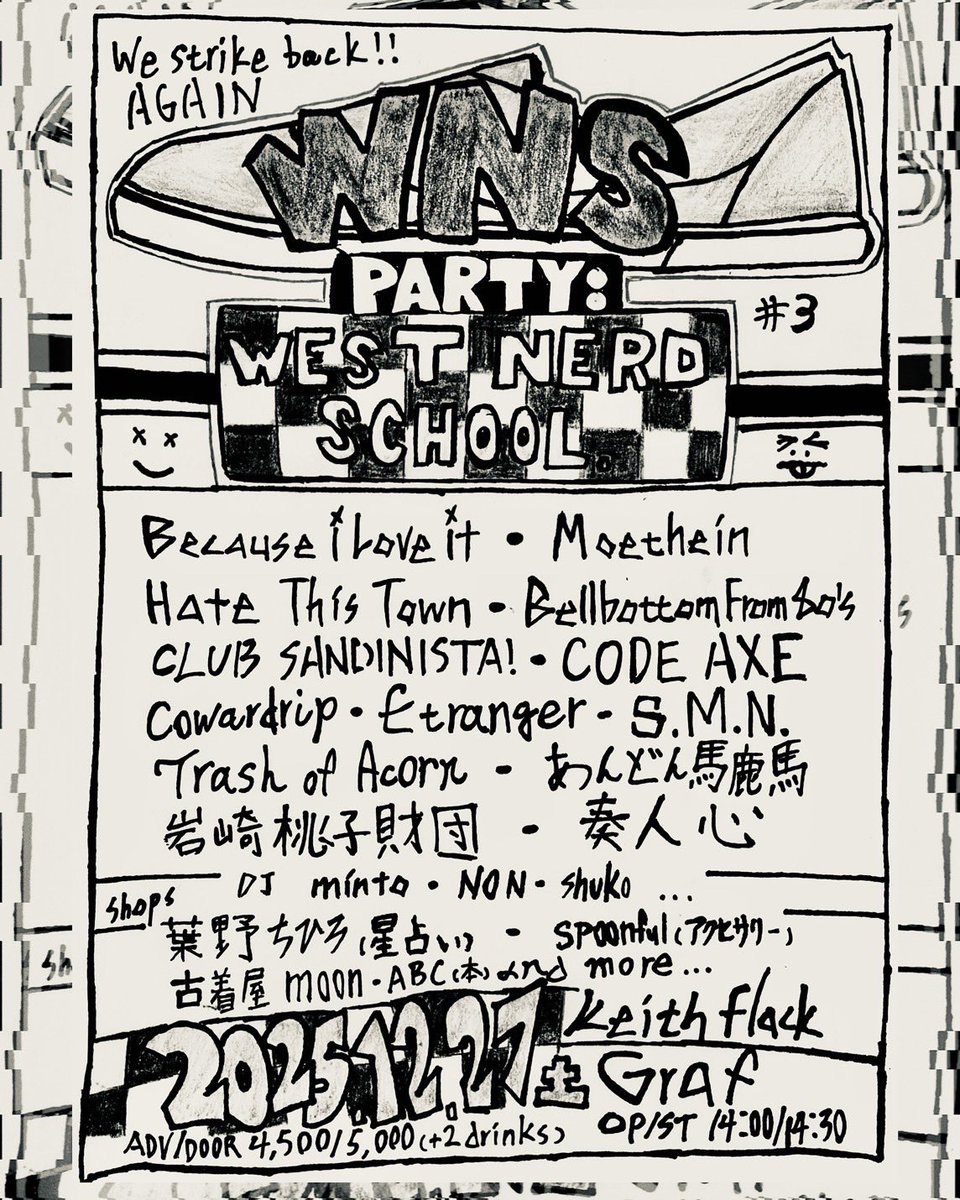 We strike back!!
AGAIN
WNS
PARTY:
#3
WEST NERD
SCHOOL.
Because i Love it • Moethein
Hate This Town • Bellbottom From 80's
CLUB SANDINISTA! • CODE AXE
Cowardrip • Etranger - S.M.N.
Trash of Acorn - あんどん馬鹿馬
岩崎桃子財団 - 奏人心
DJ minto • NON • shuko ...
shops
葉野ちひろ(星占い) - spoonful(アクセサリー)
古着屋 moon • ABC(本) and more...
2025.12.27 土
Keith Flack
Graf
ADV/DOOR 4,500/5,000 (+2drinks)
OP/ST 14:00/14:30